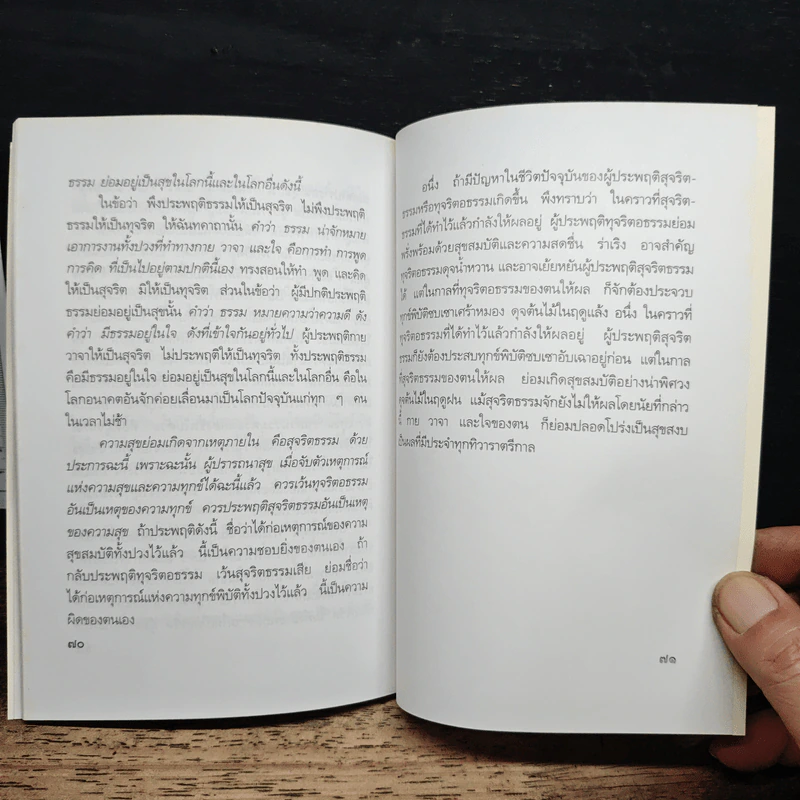 ธรรม ย่อมอยู่เป็นสุขในโลกนี้และในโลกอื่นดังนี้
ในข้อว่า พึงประพฤติธรรมให้เป็นสุจริต ไม่พึงประพฤติ
ธรรมให้เป็นทุจริต ให้ฉันทคาถานั้น คำว่า ธรรม น่าจักหมาย
เอาการงานทั้งปวงที่ทำทางกาย วาจา และใจ คือการทำ การพูด
การคิด ที่เป็นไปอยู่ตามปกตินี้เอง ทรงสอนให้ทำ พูด และคิด
ให้เป็นสุจริต มิให้เป็นทุจริต ส่วนในข้อว่า ผู้มีปกติประพฤติ
ธรรมย่อมอยู่เป็นสุขนั้น คำว่า ธรรม หมายความว่าความดี ดัง
คำว่า มีธรรมอยู่ในใจ ดังที่เข้าใจกันอยู่ทั่วไป ผู้ประพฤติกาย
วาจาให้เป็นสุจริต ไม่ประพฤติให้เป็นทุจริต ทั้งประพฤติธรรม
คือมีธรรมอยู่ในใจ ย่อมอยู่เป็นสุขในโลกนี้และในโลกอื่น คือใน
โลกอนาคตอันจักค่อยเลื่อนมาเป็นโลกปัจจุบันแก่ทุก ๆ คน
ในเวลาไม่ช้า
ความสุขย่อมเกิดจากเหตุภายใน คือสุจริตธรรม ด้วย
ประการฉะนี้ เพราะฉะนั้น ผู้ปรารถนาสุข เมื่อจับตัวเหตุการณ์
แห่งความสุขและความทุกข์ได้ฉะนี้แล้ว ควรเว้นทุจริตอธรรม
อันเป็นเหตุของความทุกข์ ควรประพฤติสุจริตธรรมอันเป็นเหตุ
ของความสุข ถ้าประพฤติดังนี้ ชื่อว่าได้ก่อเหตุการณ์ของความ
สุขสมบัติทั้งปวงไว้แล้ว นี้เป็นความชอบยิ่งของตนเอง ถ้า
กลับประพฤติทุจริตอธรรม เว้นสุจริตธรรมเสีย ย่อมชื่อว่า
ได้ก่อเหตุการณ์แห่งความทุกข์พิบัติทั้งปวงไว้แล้ว นี้เป็นความ
ผิดของตนเอง
๗๐
อนึ่ง ถ้ามีปัญหาในชีวิตปัจจุบันของผู้ประพฤติสุจริต-
ธรรมหรือทุจริตอธรรมเกิดขึ้น พึงทราบว่า ในคราวที่สุจริต-
ธรรมที่ได้ทำไว้แล้วกำลังให้ผลอยู่ ผู้ประพฤติทุจริตอธรรมย่อม
พรั่งพร้อมด้วยสุขสมบัติและความสดชื่น ร่าเริง อาจสำคัญ
ทุจริตอธรรมดุจน้ำหวาน และอาจเย้ยหยันผู้ประพฤติสุจริตธรรม
ได้ แต่ในกาลที่ทุจริตอธรรมของตนให้ผล ก็จักต้องประจวบ
ทุกข์พิบัติซบเซาเศร้าหมอง ดุจต้นไม้ในฤดูแล้ง อนึ่ง ในคราวที่
ทุจริตอธรรมที่ได้ทำไว้แล้วกำลังให้ผลอยู่ ผู้ประพฤติสุจริต
ธรรมก็ยังต้องประสบทุกข์พิบัติซบเซาอับเฉาอยู่ก่อน แต่ในกาล
ที่สุจริตธรรมของตนให้ผล ย่อมเกิดสุขสมบัติอย่างน่าพิศวง
ดุจต้นไม้ในฤดูฝน แม้สุจริตธรรมจักยังไม่ให้ผลโดยนัยที่กล่าว
นี้ กาย วาจา และใจของตน ก็ย่อมปลอดโปร่งเป็นสุขสงบ
เป็นผลที่มีประจำทุกทิวาราตรีกาล
๗๑